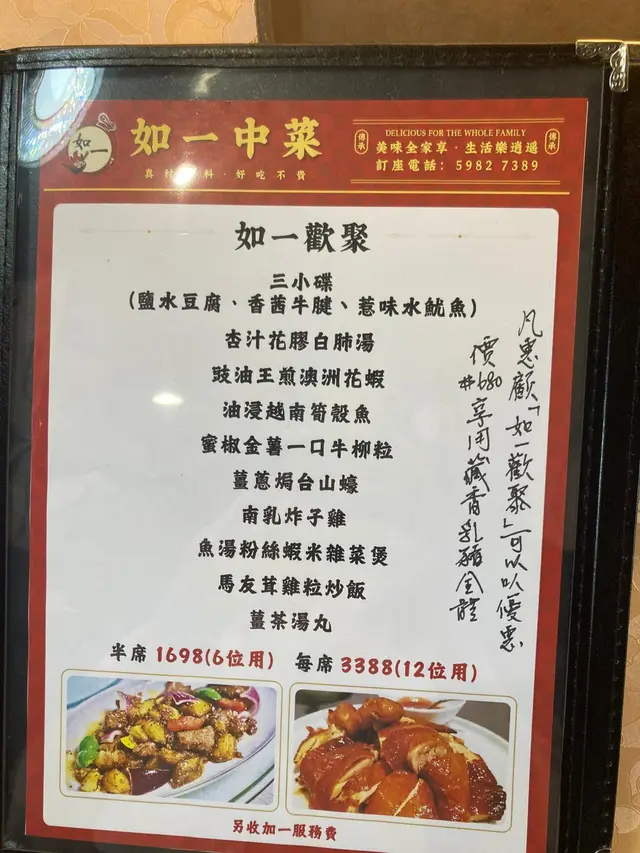 如一
如一中菜
真材 料 · 好吃不貴
傳承
DELICIOUS FOR THE WHOLE FAMILY
美味全家享 · 生活樂逍遥
訂座電話: 5982 7389
傳承
如一歡聚
三小碟
(鹽水豆腐、香茜牛腱、惹味水魷魚)
杏汁花膠白肺湯
豉油王煎澳洲花蝦
油浸越南筍殼魚
蜜椒金薯一口牛柳粒
薑蔥焗台山蠔
南乳炸子雞
魚湯粉絲蝦米雜菜煲
馬友茸雞粒炒飯
薑茶湯丸
半席 1698(6位用) 每席 3388(12位用)
凡惠顧「如一歡聚」可以以優惠
價#680享用藏香乳豬全體
另收加一服務費